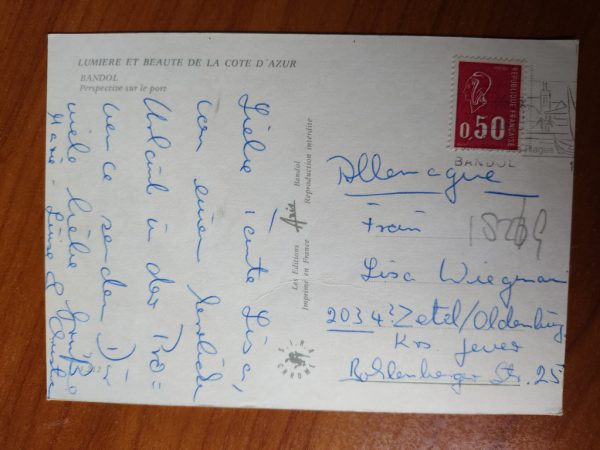 LUMIERE ET BEAUTE DE LA COTE D'AZUR
BANDOL
Perspective sur le port
Liebe Tante Lisa,
von einem herrlichen
Urlaub in der Pro=
vence senden Dir
viele liebe Grüße
Marie-Luise &
Les Editions Aris Bandol
Imprimé en France Reproduction interdite
REPUBLIQUE FRANÇAISE
0,50
Plages
BANDOL
Allemagne
Frau
Lisa Wiegman
Zetel/Oldenburg
Krs Jever
Bohlenberger Str. 25